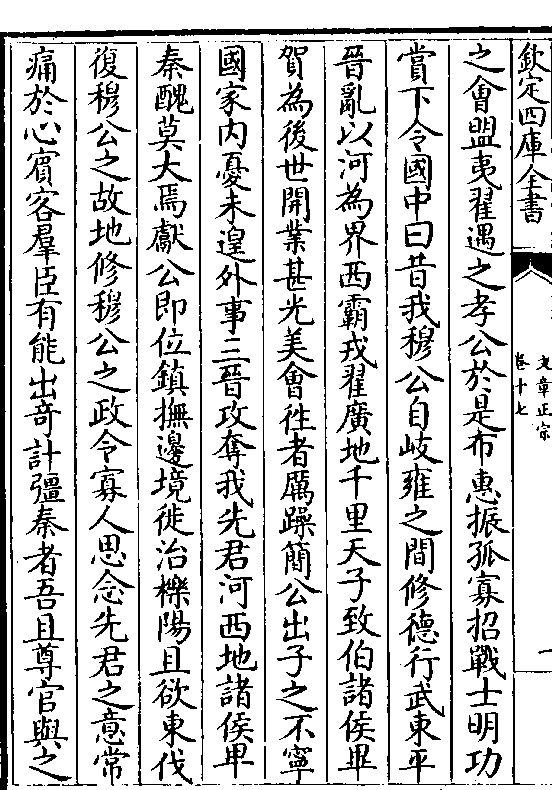 欽定四庫全書
文章正宗
卷十七
一
之會盟夷翟遇之孝公於是布惠振孤寡招戰士明功
賞下令國中曰昔我穆公自岐雍之間修德行武東平
晉亂以河為界西霸戎翟廣地千里天子致伯諸侯畢
賀為後世開業甚光美會徃者厲躁簡公出子之不寧
國家内憂未遑外事三晉攻奪我先君河西地諸侯卑
秦醜莫大焉獻公即位鎮撫邊境徙治櫟陽且欲東伐
復穆公之故地修穆公之政令寡人思念先君之意常
痛於心賓客羣臣有能出竒計彊秦者吾且尊官與之